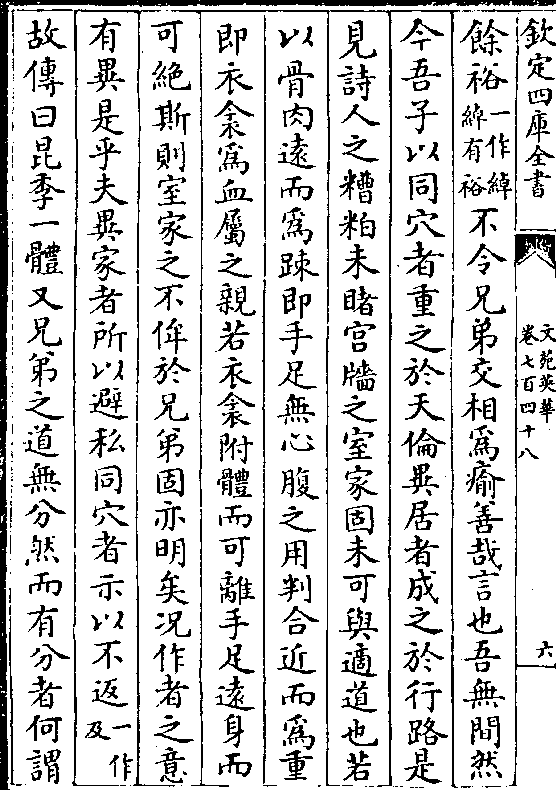 欽定四庫全書
文苑英華
卷七百四十八
六
餘裕一作綽綽有裕不令兄弟交相為瘉善哉言也吾無間然
今吾子以同穴者重之於天倫異居者成之於行路是
見詩人之糟粕未睹宫牆之室家固未可與適道也若
以骨肉遠而為踈即手足無心腹之用判合近而為重
即衣衾為血屬之親若衣衾附體而可離手足遠身而
可絶斯則室家之不侔於兄弟固亦明矣况作者之意
有異是乎夫異家者所以避私同穴者示以不返一作及
故傳曰昆季一體又兄弟之道無分然而有分者何謂